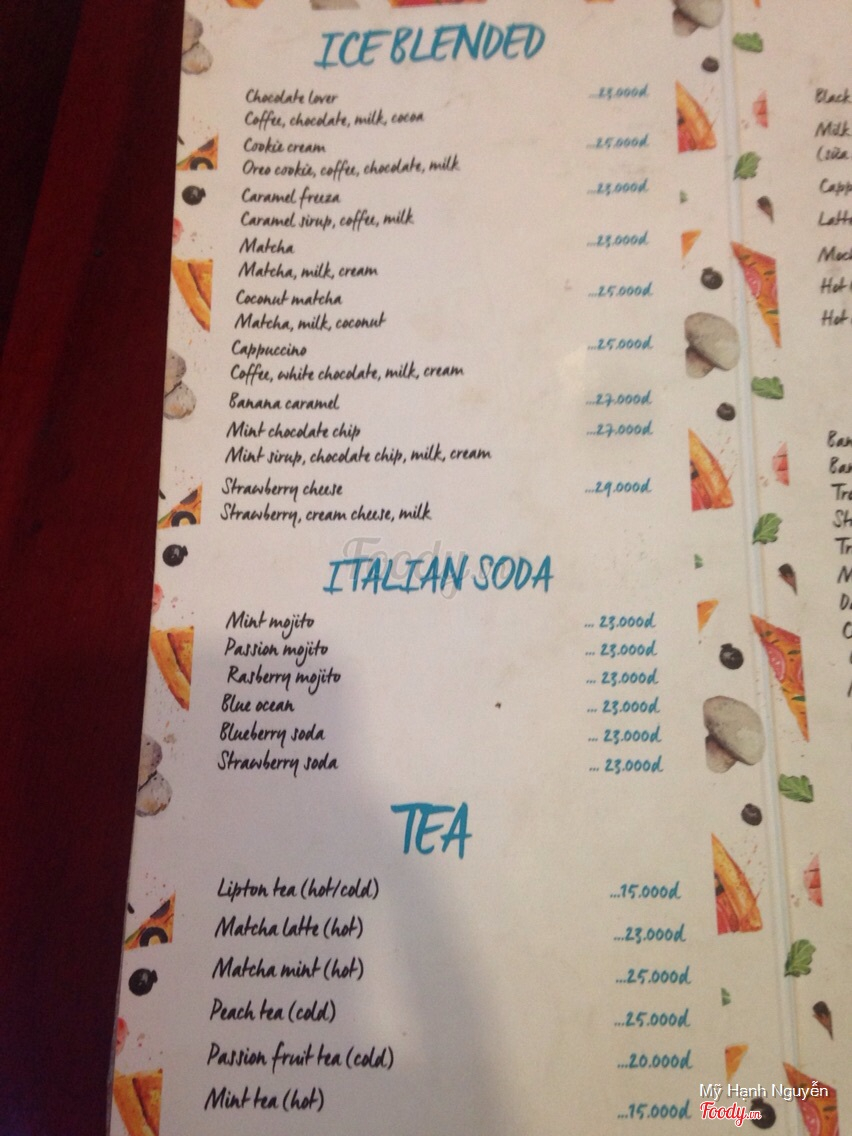 ICE BLENDED
Chocolate lover ...23.000đ
Coffee, chocolate, milk, cocoa
Cookie cream ...25.000đ
Oreo cookie, coffee, chocolate, milk
Caramel freeza ...23.000đ
Caramel sirup, coffee, milk
Matcha ...23.000đ
Matcha, milk, cream
Coconut matcha ...25.000đ
Matcha, milk, coconut
Cappuccino ...25.000đ
Coffee, white chocolate, milk, cream
Banana caramel ...27.000đ
Mint chocolate chip ...27.000đ
Mint sirup, chocolate chip, milk, cream
Strawberry cheese ...29.000đ
Strawberry, cream cheese, milk
Foody
ITALIAN SODA
Mint mojito ... 23.000đ
Passion mojito ... 23.000đ
Rasberry mojito ... 23.000đ
Blue ocean ... 23.000đ
Blueberry soda ... 23.000đ
Strawberry soda ... 23.000đ
TEA
Lipton tea (hot/cold) ...15.000đ
Matcha latte (hot) ...23.000đ
Matcha mint (hot) ...25.000đ
Peach tea (cold) ...25.000đ
Passion fruit tea (cold) ...20.000đ
Mint tea (hot) ...15.000đ
Black
Milk
(sữa
Hot
Hot
Mỹ Hạnh Nguyễn
Foody.vn